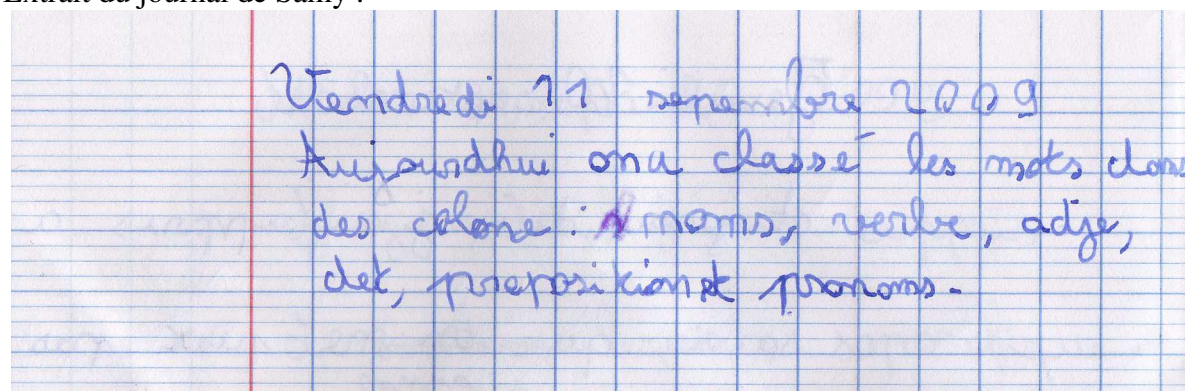 Extrait du journal de Samy :
Vendredi 11 sepembre 2009
Aujourdhui ona classé les mots dans
des colone : noms, verbe, adje,
det, preposition et pronoms.